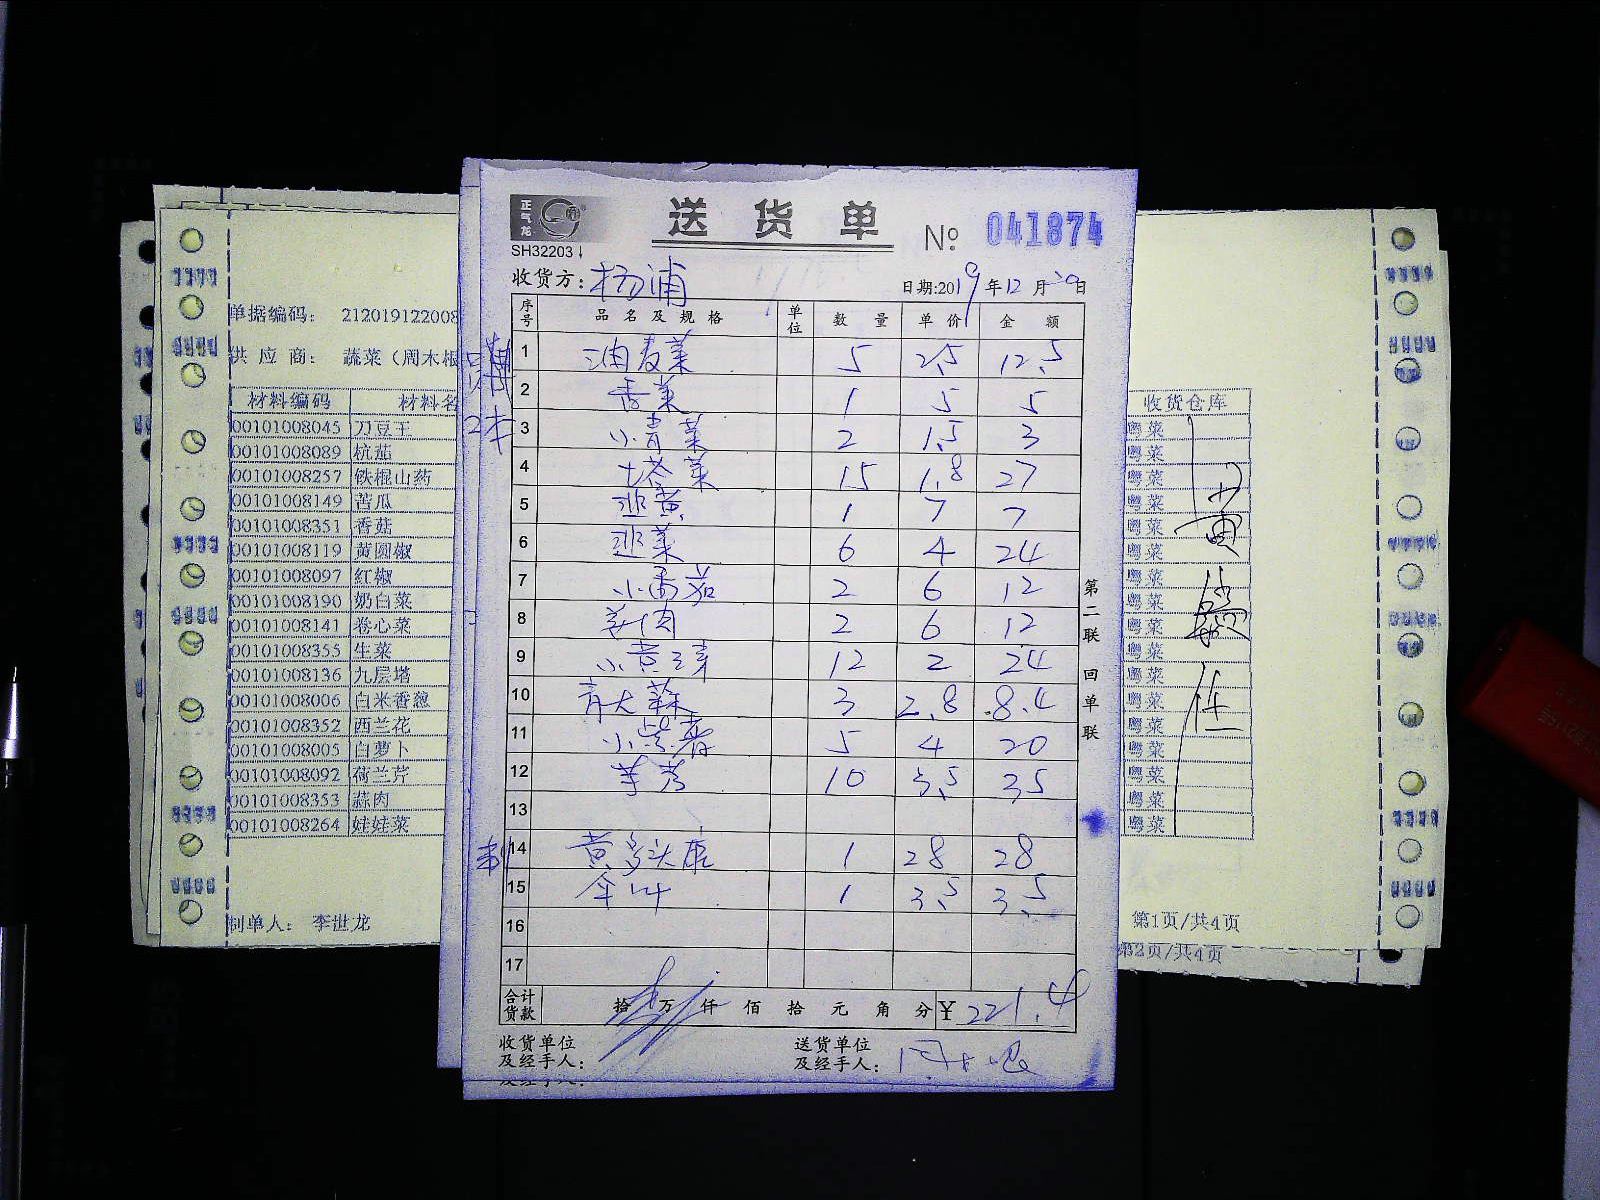 正气龙
SH32203
送货单
№ 041874
收货方：杨浦
日期:2019年12月20日
序号 品名及规格 单位 数量 单价 金额
1 油麦菜 5 2.5 12.5
2 香菜 1 5 5
3 小青菜 2 1.5 3
4 塔菜 15 1.8 27
5 韭黄 1 7 7
6 韭菜 6 4 24
7 小番茄 2 6 12
8 姜肉 2 6 12
9 小黄瓜 12 2 24
10 青大蒜 3 2.8 8.4
11 小紫薯 5 4 20
12 芋艿 10 3.5 35
13
14 1 28 28
15 1 3.5 3.5
16
17
合计货款 拾万仟佰拾元角分 ¥221.4
收货单位及经手人：
送货单位及经手人：
第二联 回单联
2本
单据编码： 212019122008
供应商： 蔬菜（周木根
材料编码 材料名
00101008045 刀豆王
00101008089 杭茄
00101008257 铁棍山药
00101008149 苦瓜
00101008351 香菇
00101008119 黄圆椒
00101008097 红椒
00101008190 奶白菜
00101008141 卷心菜
00101008355 生菜
00101008136 九层塔
00101008006 白米香葱
00101008352 西兰花
00101008005 白萝卜
00101008092 荷兰芹
00101008353 蒜肉
00101008264 娃娃菜
制单人： 李世龙
收货仓库
粤菜
粤菜
粤菜
粤菜
粤菜
粤菜
粤菜
粤菜
粤菜
粤菜
粤菜
粤菜
粤菜
粤菜
粤菜
粤菜
粤菜
第1页/共4页
第2页/共4页